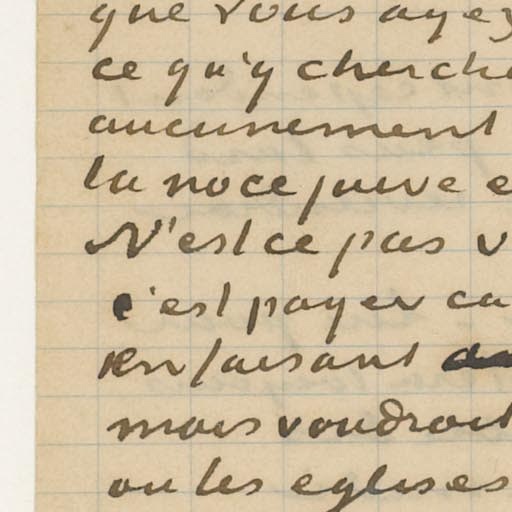 que vous ayez
ce qu'y cherche
aucunement
la noce juive e
N'est ce pas v
c'est payer ca
en faisant
mais voudrait
ou les eglises